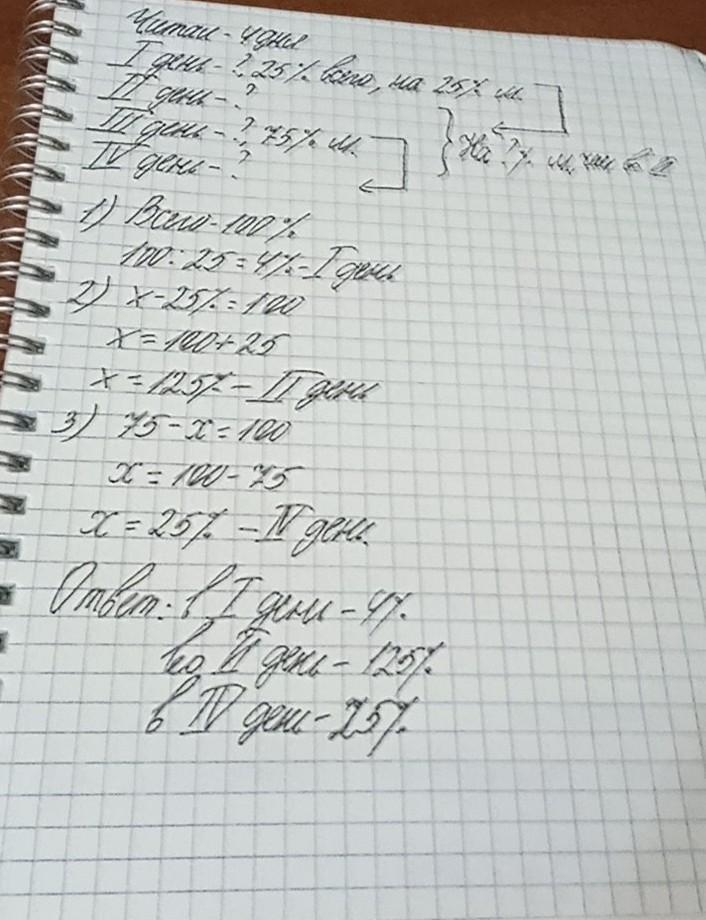 Читал - 4 дня
I день - ?, 25% всего, на 25% м.
II день - ?
III день - ?, 75% м.
IV день - ?
} На ?% м. чем в II
1) Всего - 100%
100 : 25 = 4% - I день
2) x - 25% = 100
x = 100 + 25
x = 125% - II день
3) 75 - x = 100
x = 100 - 75
x = 25% - IV день.
Ответ: в I день - 4%.
во II день - 125%.
в IV день - 25%.